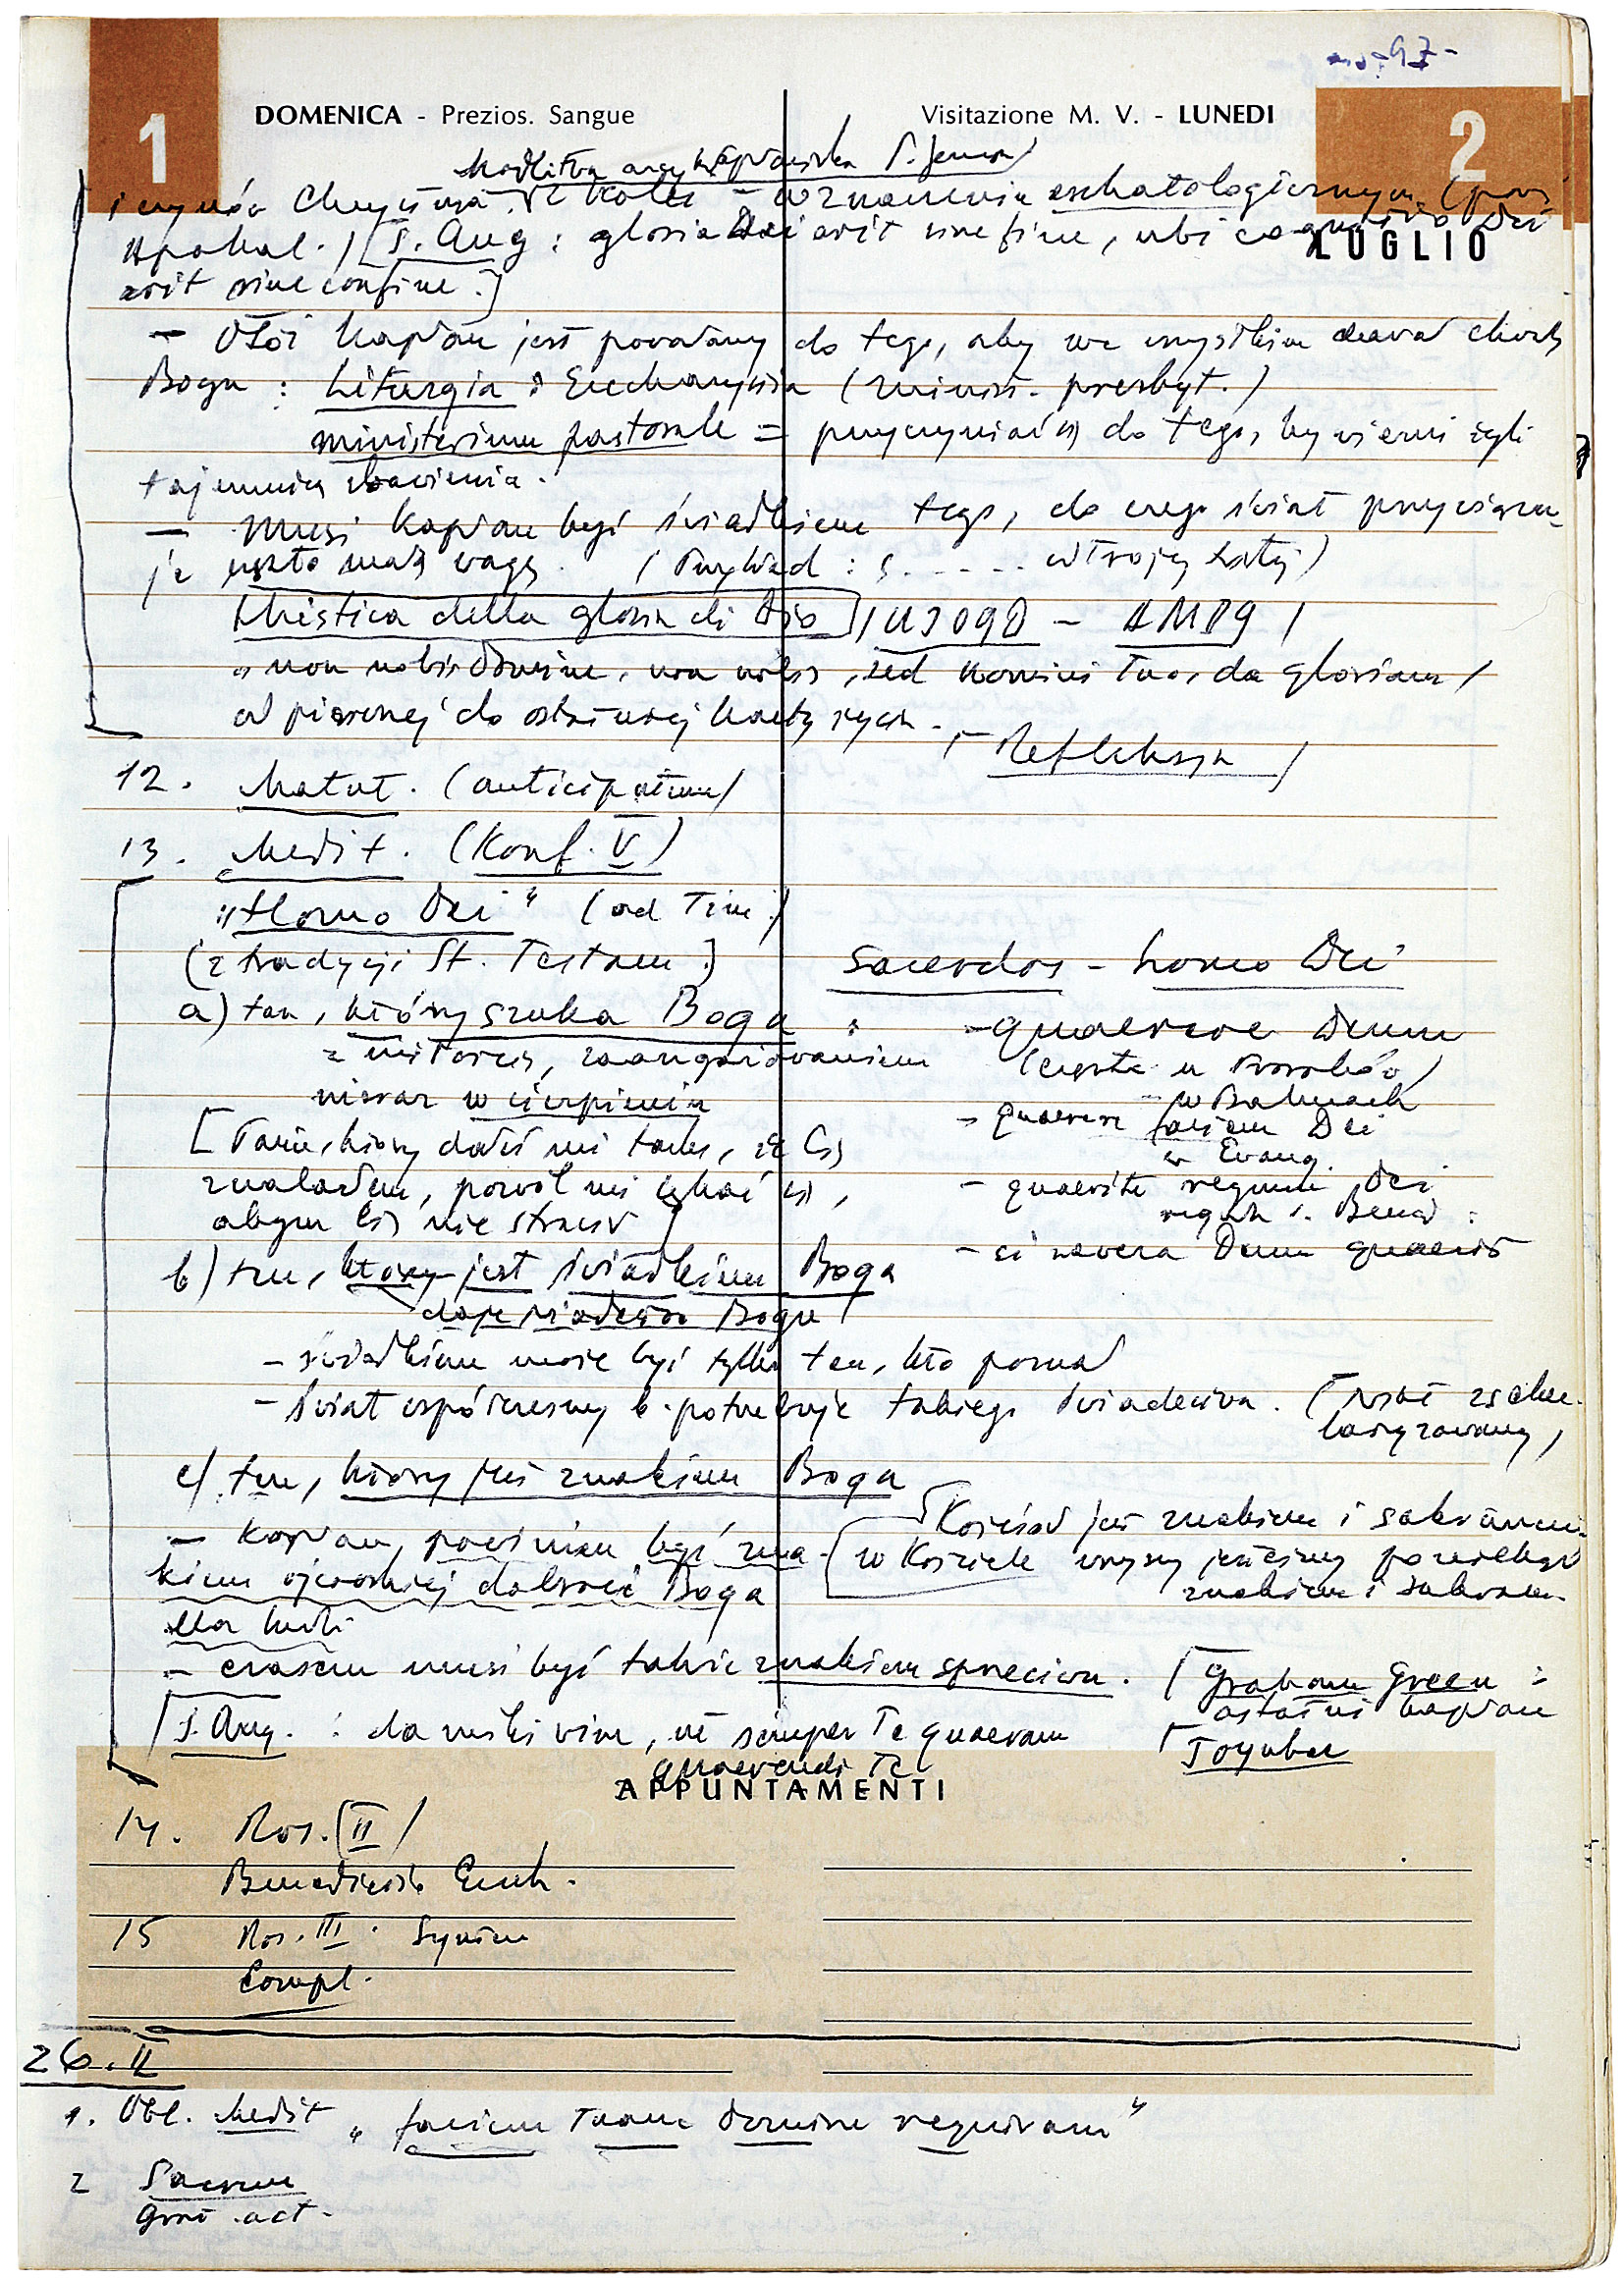 1
DOMENICA - Prezios. Sangue
Visitazione M. V. - LUNEDI
2
LUGLIO
Modlitwa arcykapłańska P. Jezusa
i czynów Chrystusa w znaczeniu eschatologicznym (por
Apokal.) [S. Aug: gloria Dei erit sine fine, ubi cognitio Dei
erit sine confine.]
- Otóż kapłan jest powołany do tego, aby we wszystkim dawał chwałę
Bogu: Liturgia: Eucharystia (minist. presbyt.)
ministerium pastorale = przyczyniać się do tego, by wierni żyli
tajemnicą zbawienia.
- Musi kapłan być świadkiem tego, do czego świat przywiązu-
je małą wagę. (Przykład: s. ..... w Trójcy Św.)
Mistica della gloria di Dio] / UIOGD - AMDG /
"non nobis Domine, non nobis, sed nomini Tuo, da gloriam /
od pierwszej do ostatniej karty życia.
/- Refleksja /
12. Matut. (anticipatum)
13. Medit. (Konf. V)
"Homo Dei" (ad Tim.)
(z tradycji St. Testam.)
Sacerdos - homo Dei
a) ten, który szuka Boga:
z miłością, zaangażowaniem
nieraz w cierpieniu
[Panie, który dałeś mi łaskę, że Cię
znalazłem, pozwól mi szukać Cię,
abym Cię nie stracił]
- quaerere Deum
(częste u Proroków)
- w Psalmach
- quaerere faciem Dei
w Evang.
- quaerite regnum Dei
reguła s. Bened:
- si revera Deum quaerit
b) ten, który jest świadkiem Boga
daje świadectwo Bogu
- świadkiem może być tylko ten, kto poznał
- świat współczesny b. potrzebuje takiego świadectwa. (świat zseku-
laryzowany)
c) ten, który jest znakiem Boga
- kapłan, powinien być zna-
kiem ojcowskiej dobroci Boga
dla ludzi
[Kościół jest znakiem i sakramen.
w Kościele wszyscy jesteśmy
znakiem i sakram.
- czasem musi być także znakiem sprzeciwu.
(Graham Green:
ostatni kapłan
[Toynbee
[S. Aug.: da mihi vim, ut semper Te quaeram
quaerendi Te
APPUNTAMENTI
14. Ros. (II)
Benedictio Euch.
15 Ros. III.
Compl.
26. II
1. Obl. Medit "faciem Tuam Domine requiram"
2 Sacrum
Grat. act.